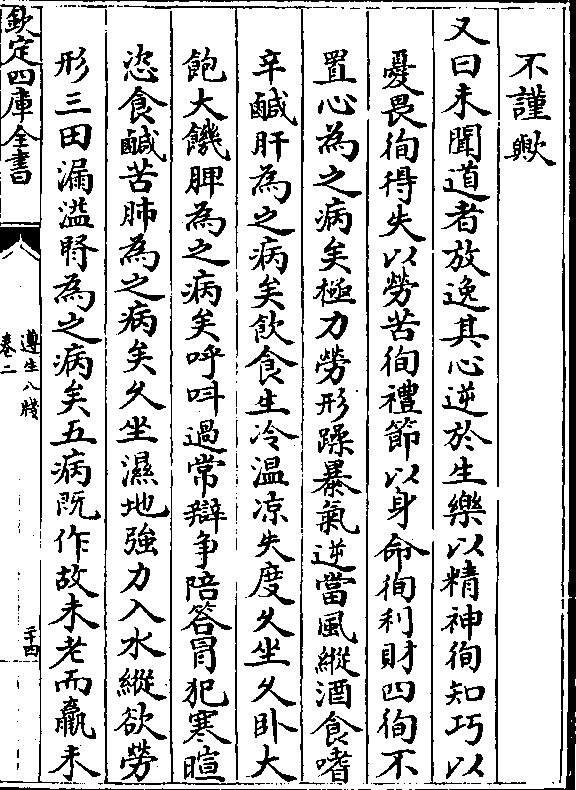 不謹歟
又曰未聞道者放逸其心逆於生樂以精神徇知巧以
憂畏徇得失以勞苦徇禮節以身命徇利財四徇不
置心為之病矣極力勞形躁暴氣逆當風縱酒食嗜
辛鹹肝為之病矣飲食生冷温凉失度久坐久卧大
飽大饑脾為之病矣呼呌過常辯争陪答冐犯寒暄
恣食鹹苦肺為之病矣久坐濕地強力入水縱欲勞
形三田漏溢腎為之病矣五病既作故未老而羸未
欽定四庫全書
遵生八牋
卷二
二十四